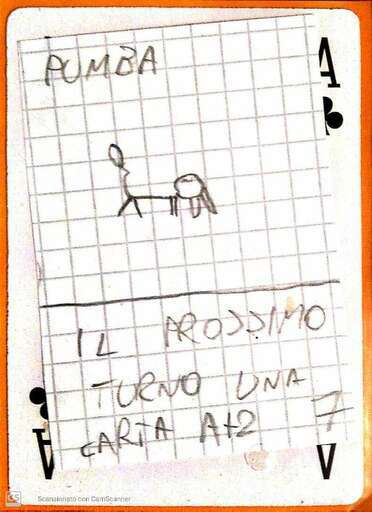 PUMBA
A
IL PROSSIMO
TURNO UNA
CARTA A+2 7
A
A
CS Scansionato con CamScanner